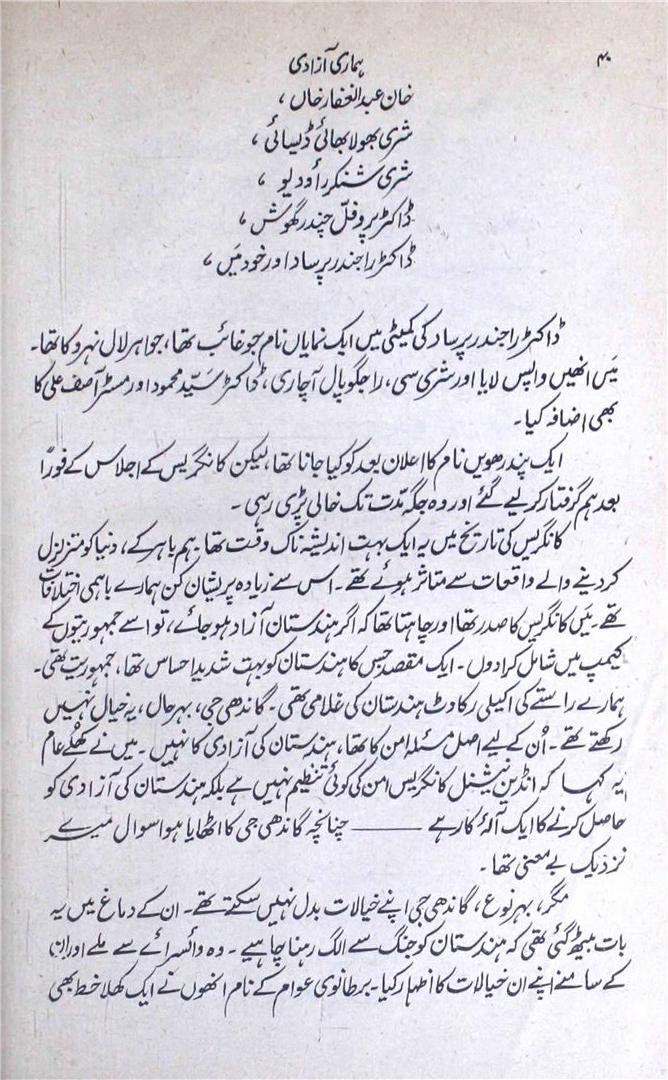 ۴۰
ہماری آزادی
خان عبدالغفار خاں ،
شری بھولا بھائی ڈیسائی ،
شری شنکر راؤ دیو ،
ڈاکٹر پروفلّ چندر گھوش ،
ڈاکٹر راجندر پرساد اور خود مَیں ،
ڈاکٹر راجندر پرساد کی کمیٹی میں ایک نمایاں نام جو غائب تھا، جواہر لال نہرو کا تھا۔
مَیں انھیں واپس لایا اور شری سی، راجگوپال آچاری، ڈاکٹر سَیّد محمود اور مسٹر آصف علی کا
بھی اضافہ کیا۔
ایک پندرھویں نام کا اعلان بعد کو کیا جانا تھا، لیکن کانگریس کے اجلاس کے فوراً
بعد ہم گرفتار کر لیے گئے اور وہ جگہ مدّت تک خالی پڑی رہی ۔
کانگریس کی تاریخ میں یہ ایک بہت اندیشہ ناک وقت تھا۔ ہم باہر کے، دنیا کو متزلزل
کر دینے والے واقعات سے متاثر ہوئے تھے ۔ اس سے زیادہ پریشان کن ہمارے باہمی اختلافات
تھے ۔ مَیں کانگریس کا صدر تھا اور چاہتا تھا کہ اگر ہندستان آزاد ہو جائے، تو اسے جمہوریتوں کے
کیمپ میں شامل کرا دوں ۔ ایک مقصد جس کا ہندستان کو بہت شدید احساس تھا، جمہوریت تھی۔
ہمارے راستے کی اکیلی رکاوٹ ہندستان کی غلامی تھی ۔ گاندھی جی، بہرحال، یہ خیال نہیں
رکھتے تھے ۔ اُن کے لیے اصل مسئلہ امن کا تھا، ہندستان کی آزادی کا نہیں ۔ میں نے کھُلے عام
یہ کہا کہ انڈین نیشنل کانگریس امن کی کوئی تنظیم نہیں ہے بلکہ ہندستان کی آزادی کو
حاصل کرنے کا ایک آلۂ کار ہے ——— چنانچہ گاندھی جی کا اٹھایا ہوا سوال میرے
نزدیک بے معنی تھا ۔
مگر، بہر نوع، گاندھی جی اپنے خیالات بدل نہیں سکتے تھے ۔ ان کے دماغ میں یہ
بات بیٹھ گئی تھی کہ ہندستان کو جنگ سے الگ رہنا چاہیے ۔ وہ وائسرائے سے ملے اور ان
کے سامنے اپنے ان خیالات کا اظہار کیا۔ برطانوی عوام کے نام انھوں نے ایک کھلا خط بھی